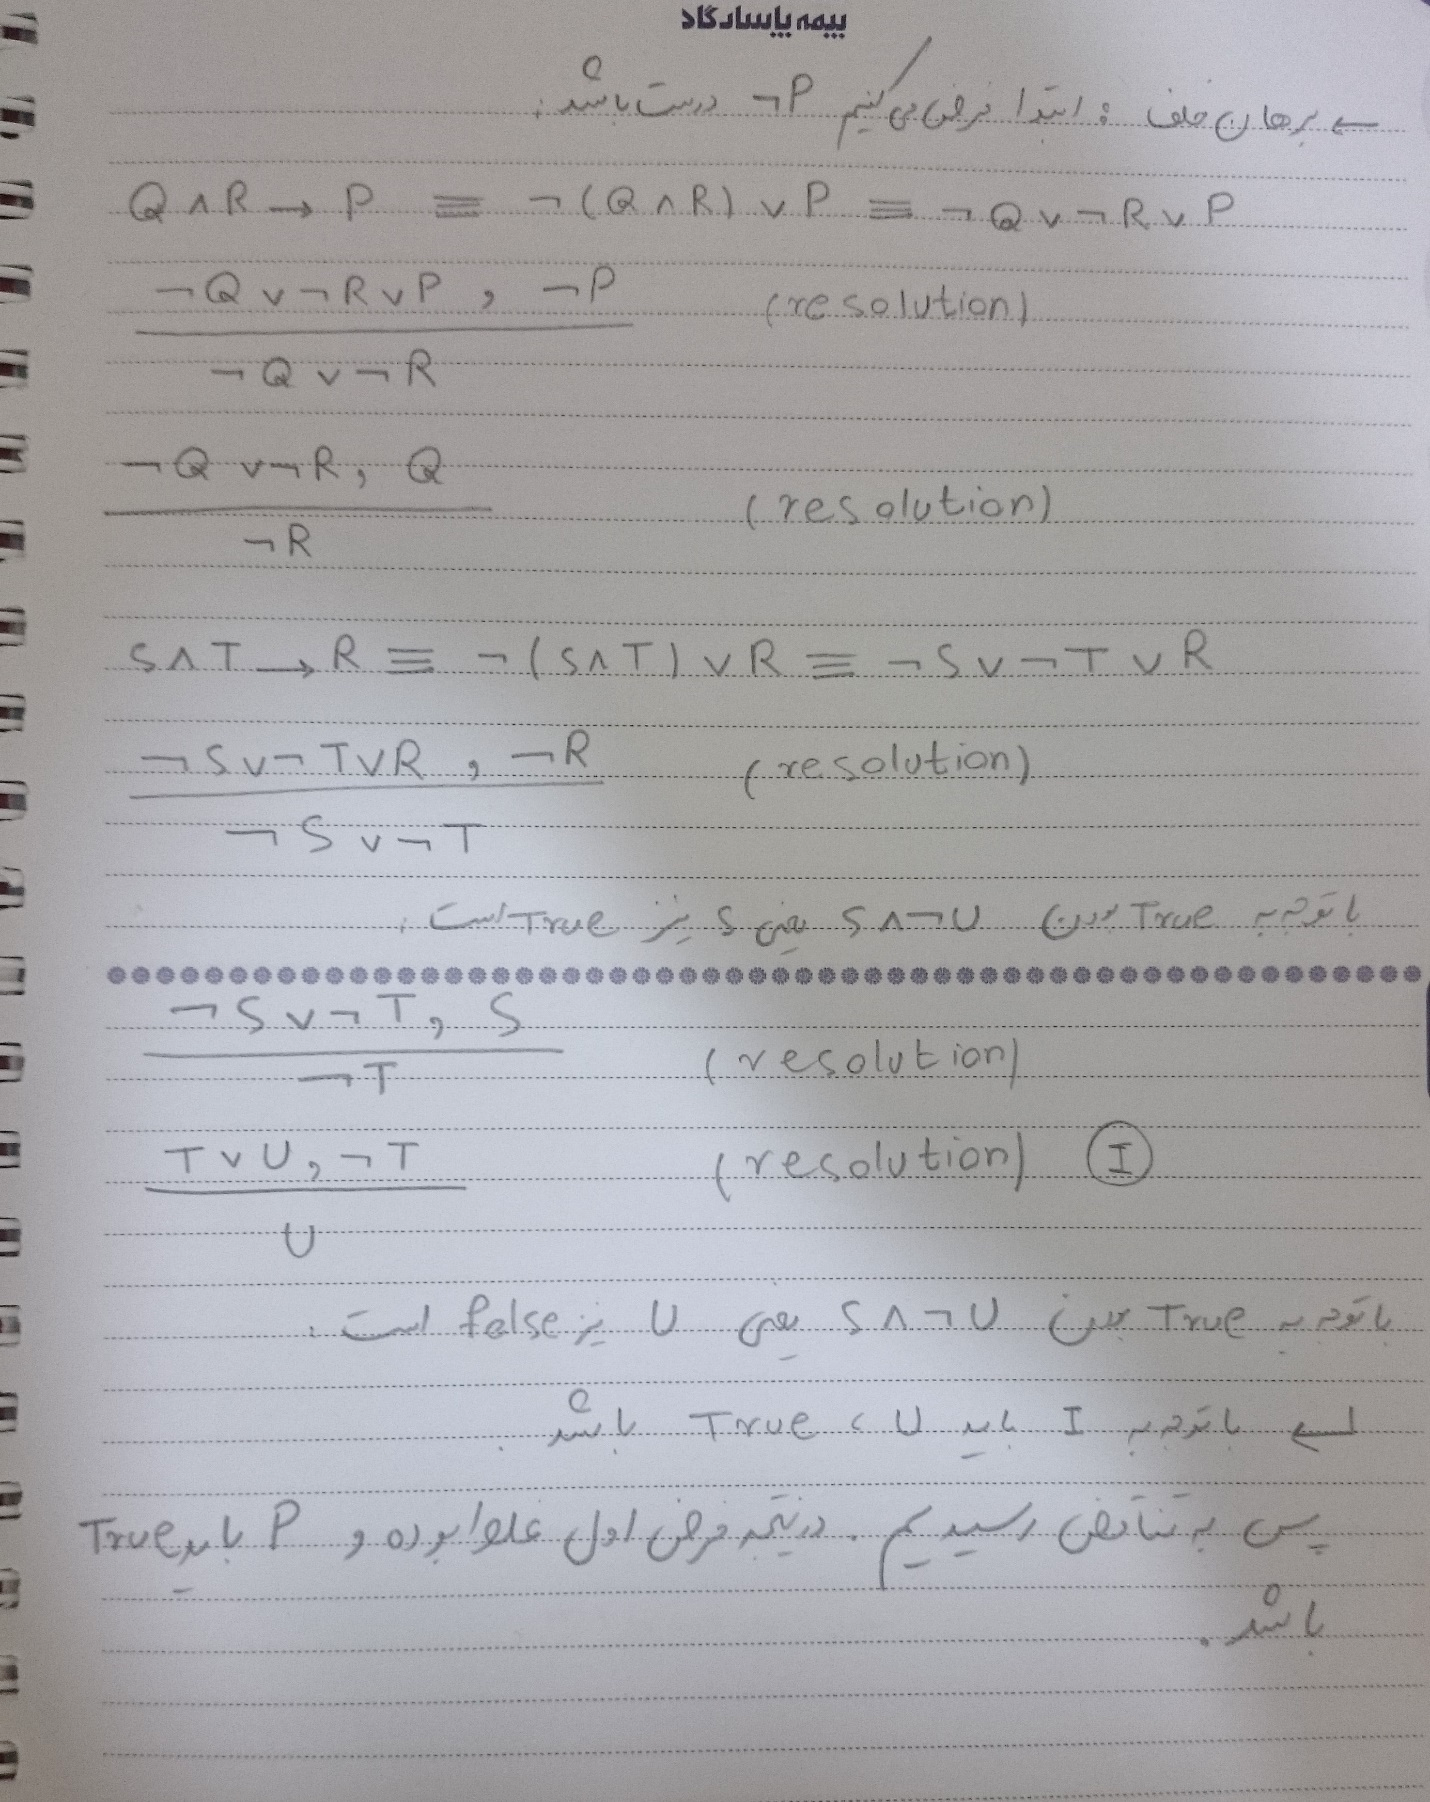 بیمه پاسارگاد
← برهان خلف : ابتدا فرض می کنیم ¬P درست باشد.
Q ∧ R → P ≡ ¬(Q ∧ R) ∨ P ≡ ¬Q ∨ ¬R ∨ P
¬Q ∨ ¬R ∨ P , ¬P (resolution)
¬Q ∨ ¬R
¬Q ∨ ¬R, Q
(resolution)
¬R
S ∧ T → R ≡ ¬(S ∧ T) ∨ R ≡ ¬S ∨ ¬T ∨ R
¬S ∨ ¬T ∨ R , ¬R (resolution)
¬S ∨ ¬T
با توجه به True بودن S ∧ ¬U یعنی S نیز True است.
¬S ∨ ¬T, S
(resolution)
¬T
T ∨ U, ¬T (resolution) I
U
با توجه به True بودن S ∧ ¬U یعنی U نیز false است.
← با توجه به I باید U ، True باشد.
پس به تناقض رسیدیم. در نتیجه فرض اول غلط بوده و P باید True
باشد.